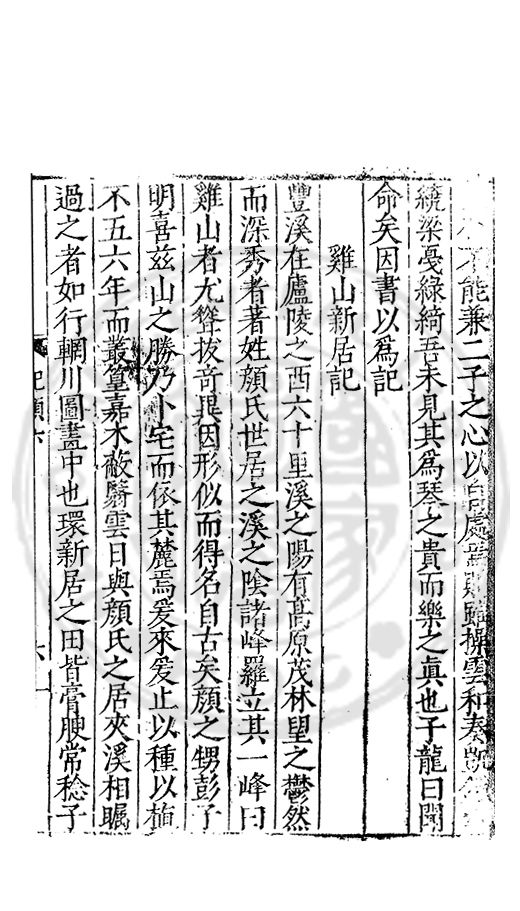 不能兼二子之心以自處焉則雖操雲和奏
繞梁戞綠綺吾未見其爲琴之貴而樂之眞也子龍曰聞
命矣因書以爲記
雞山新居記
豐溪在廬陵之西六十里溪之陽有髙原茂林望之鬱然
而深秀者著姓顔氏世居之溪之陰諸峰羅立其一峰曰
雞山者尤聳拔竒異因形似而得名自古矣顔之甥彭子
明喜兹山之勝乃卜宅而依其麓焉爰來爰止以種以植
不五六年而叢篁嘉木蔽翳雲日與顔氏之居夾溪相矚
過之者如行輞川圖畫中也環新居之田皆膏腴常稔子
記類六
六一